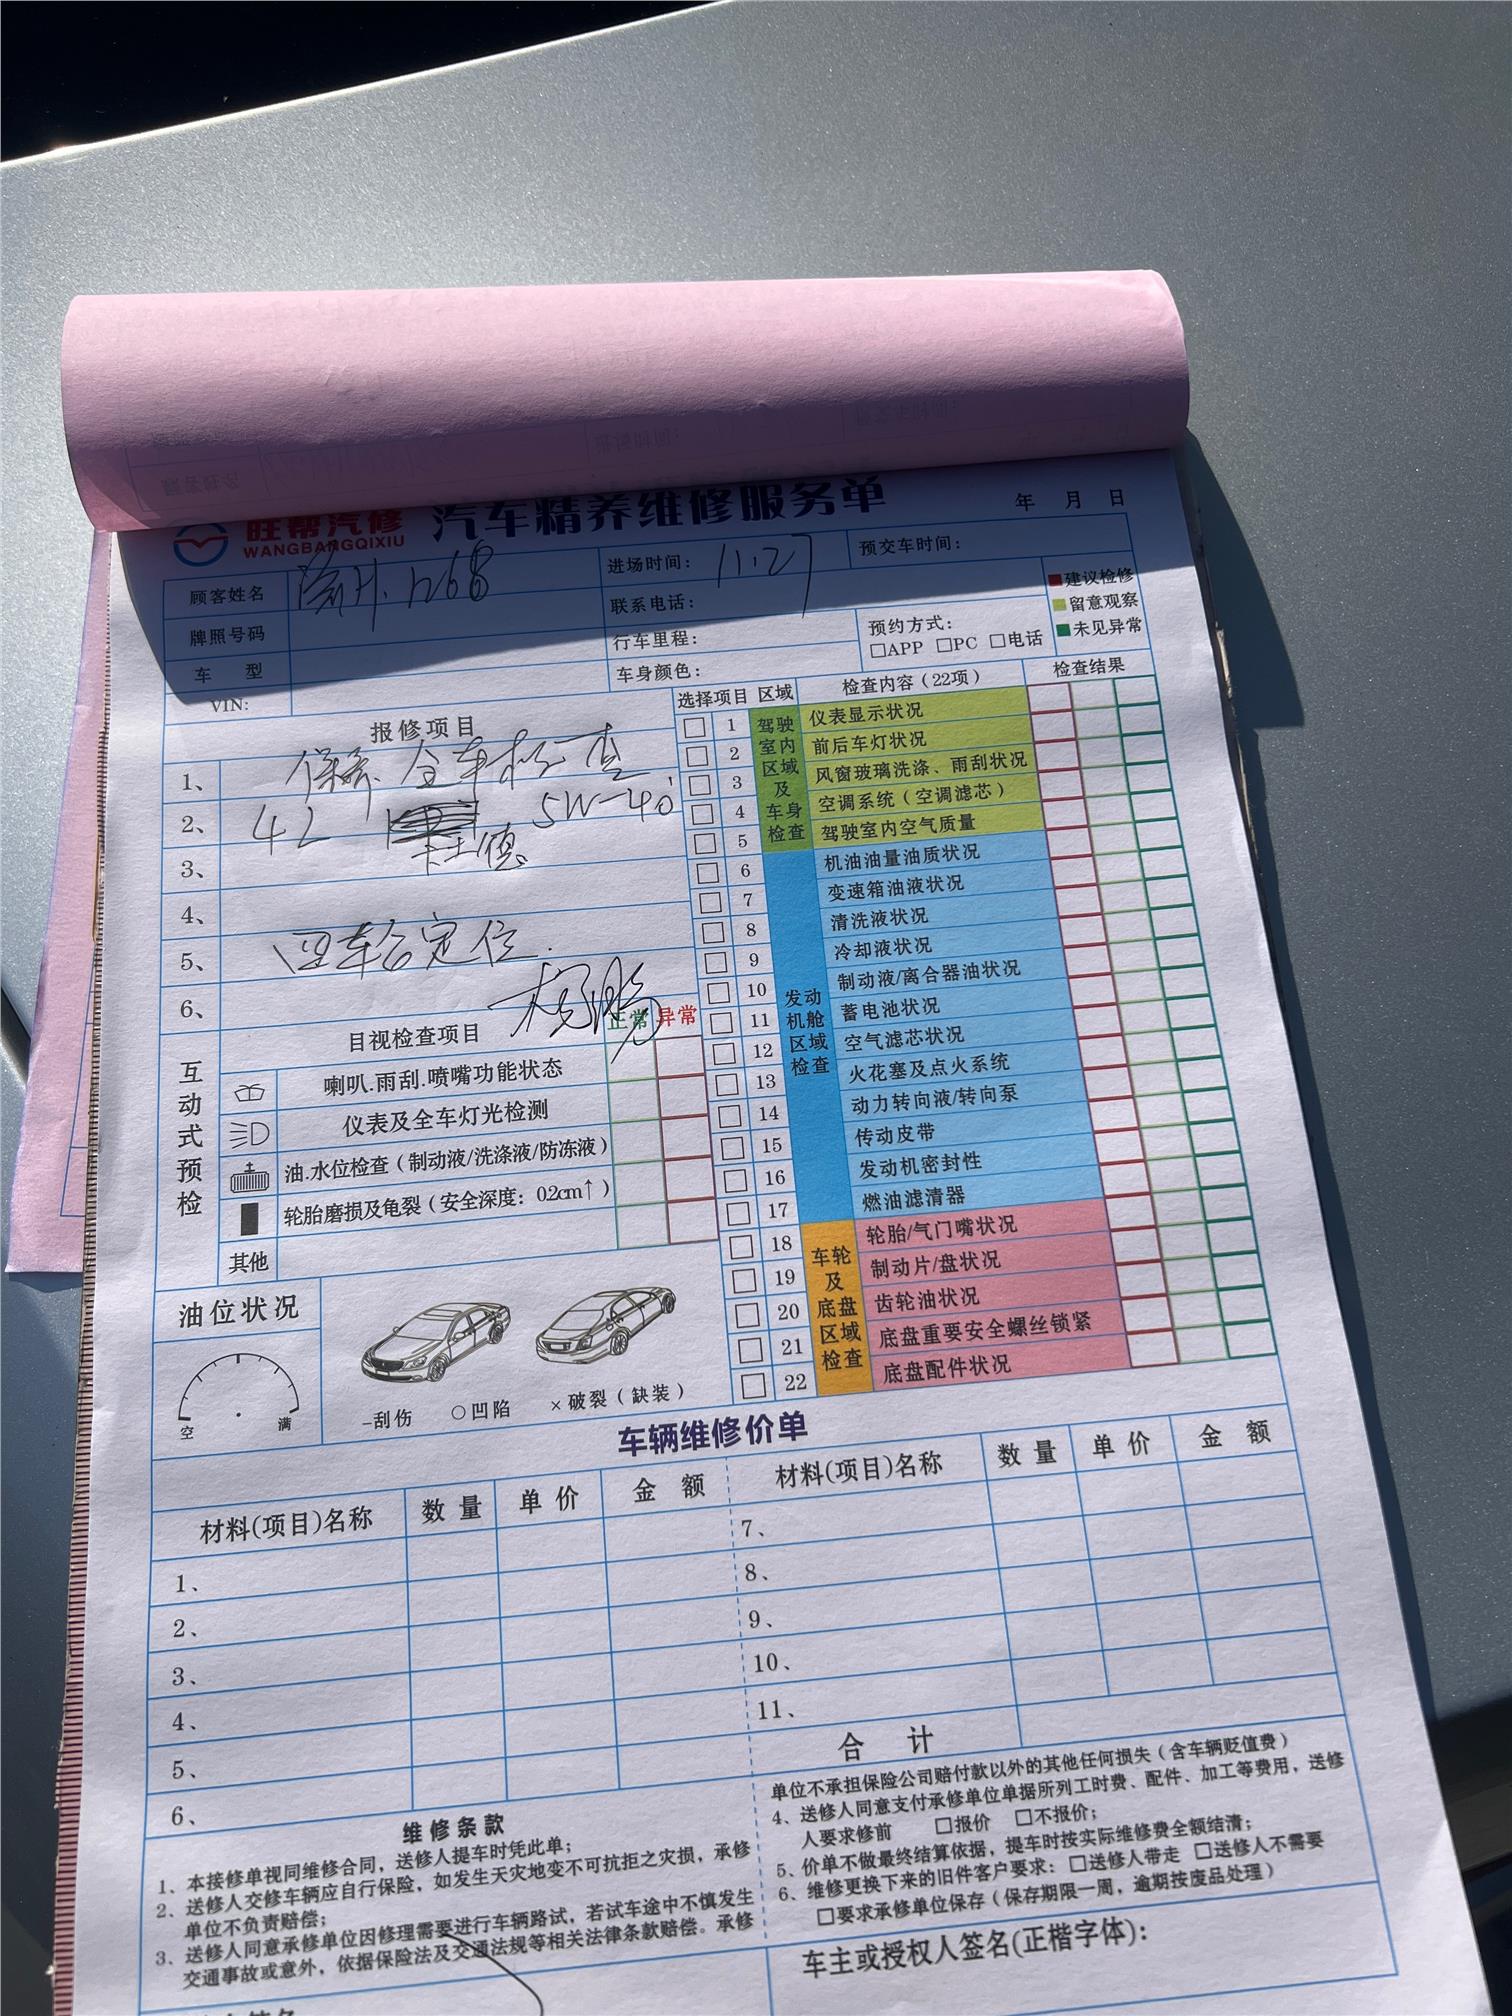 旺帮汽修 汽车精养维修服务单
WANGBANGQIXIU
年 月 日
顾客姓名 1268 进场时间: 11.27 预交车时间:
牌照号码 联系电话:
车 型 行车里程: 预约方式:
□APP □PC □电话
VIN: 车身颜色:
建议检修
留意观察
未见异常
报修项目
1、 保养. 全车检查
2、 4L 5W-40
卡士德
3、
4、
5、 四轮定位.
6、
目视检查项目 正常 异常
互动式预检
喇叭.雨刮.喷嘴功能状态
仪表及全车灯光检测
油.水位检查(制动液/洗涤液/防冻液)
轮胎磨损及龟裂(安全深度: 0.2cm↑)
其他
油位状况
空 满
-刮伤 ○凹陷 ×破裂(缺装)
选择项目 区域 检查内容(22项) 检查结果
驾驶室内区域及车身检查
1 仪表显示状况
2 前后车灯状况
3 风窗玻璃洗涤、雨刮状况
4 空调系统(空调滤芯)
5 驾驶室内空气质量
发动机舱区域检查
6 机油油量油质状况
7 变速箱油液状况
8 清洗液状况
9 冷却液状况
10 制动液/离合器油状况
11 蓄电池状况
12 空气滤芯状况
13 火花塞及点火系统
14 动力转向液/转向泵
15 传动皮带
16 发动机密封性
17 燃油滤清器
车轮及底盘区域检查
18 轮胎/气门嘴状况
19 制动片/盘状况
20 齿轮油状况
21 底盘重要安全螺丝锁紧
22 底盘配件状况
车辆维修价单
材料(项目)名称 数量 单价 金额 材料(项目)名称 数量 单价 金额
1、 7、
2、 8、
3、 9、
4、 10、
5、 11、
6、 合计
维修条款
1、本接修单视同维修合同，送修人提车时凭此单;
2、送修人交修车辆应自行保险，如发生天灾地变不可抗拒之灾损，承修
单位不负责赔偿;
3、送修人同意承修单位因修理需要进行车辆路试，若试车途中不慎发生
交通事故或意外，依据保险法及交通法规等相关法律条款赔偿。承修
单位不承担保险公司赔付款以外的其他任何损失(含车辆贬值费)
4、送修人同意支付承修单位单据所列工时费、配件、加工等费用，送修
人要求修前 □报价 □不报价;
5、价单不做最终结算依据，提车时按实际维修费全额结清;
6、维修更换下来的旧件客户要求: □送修人带走 □送修人不需要
□要求承修单位保存(保存期限一周，逾期按废品处理)
车主或授权人签名(正楷字体):